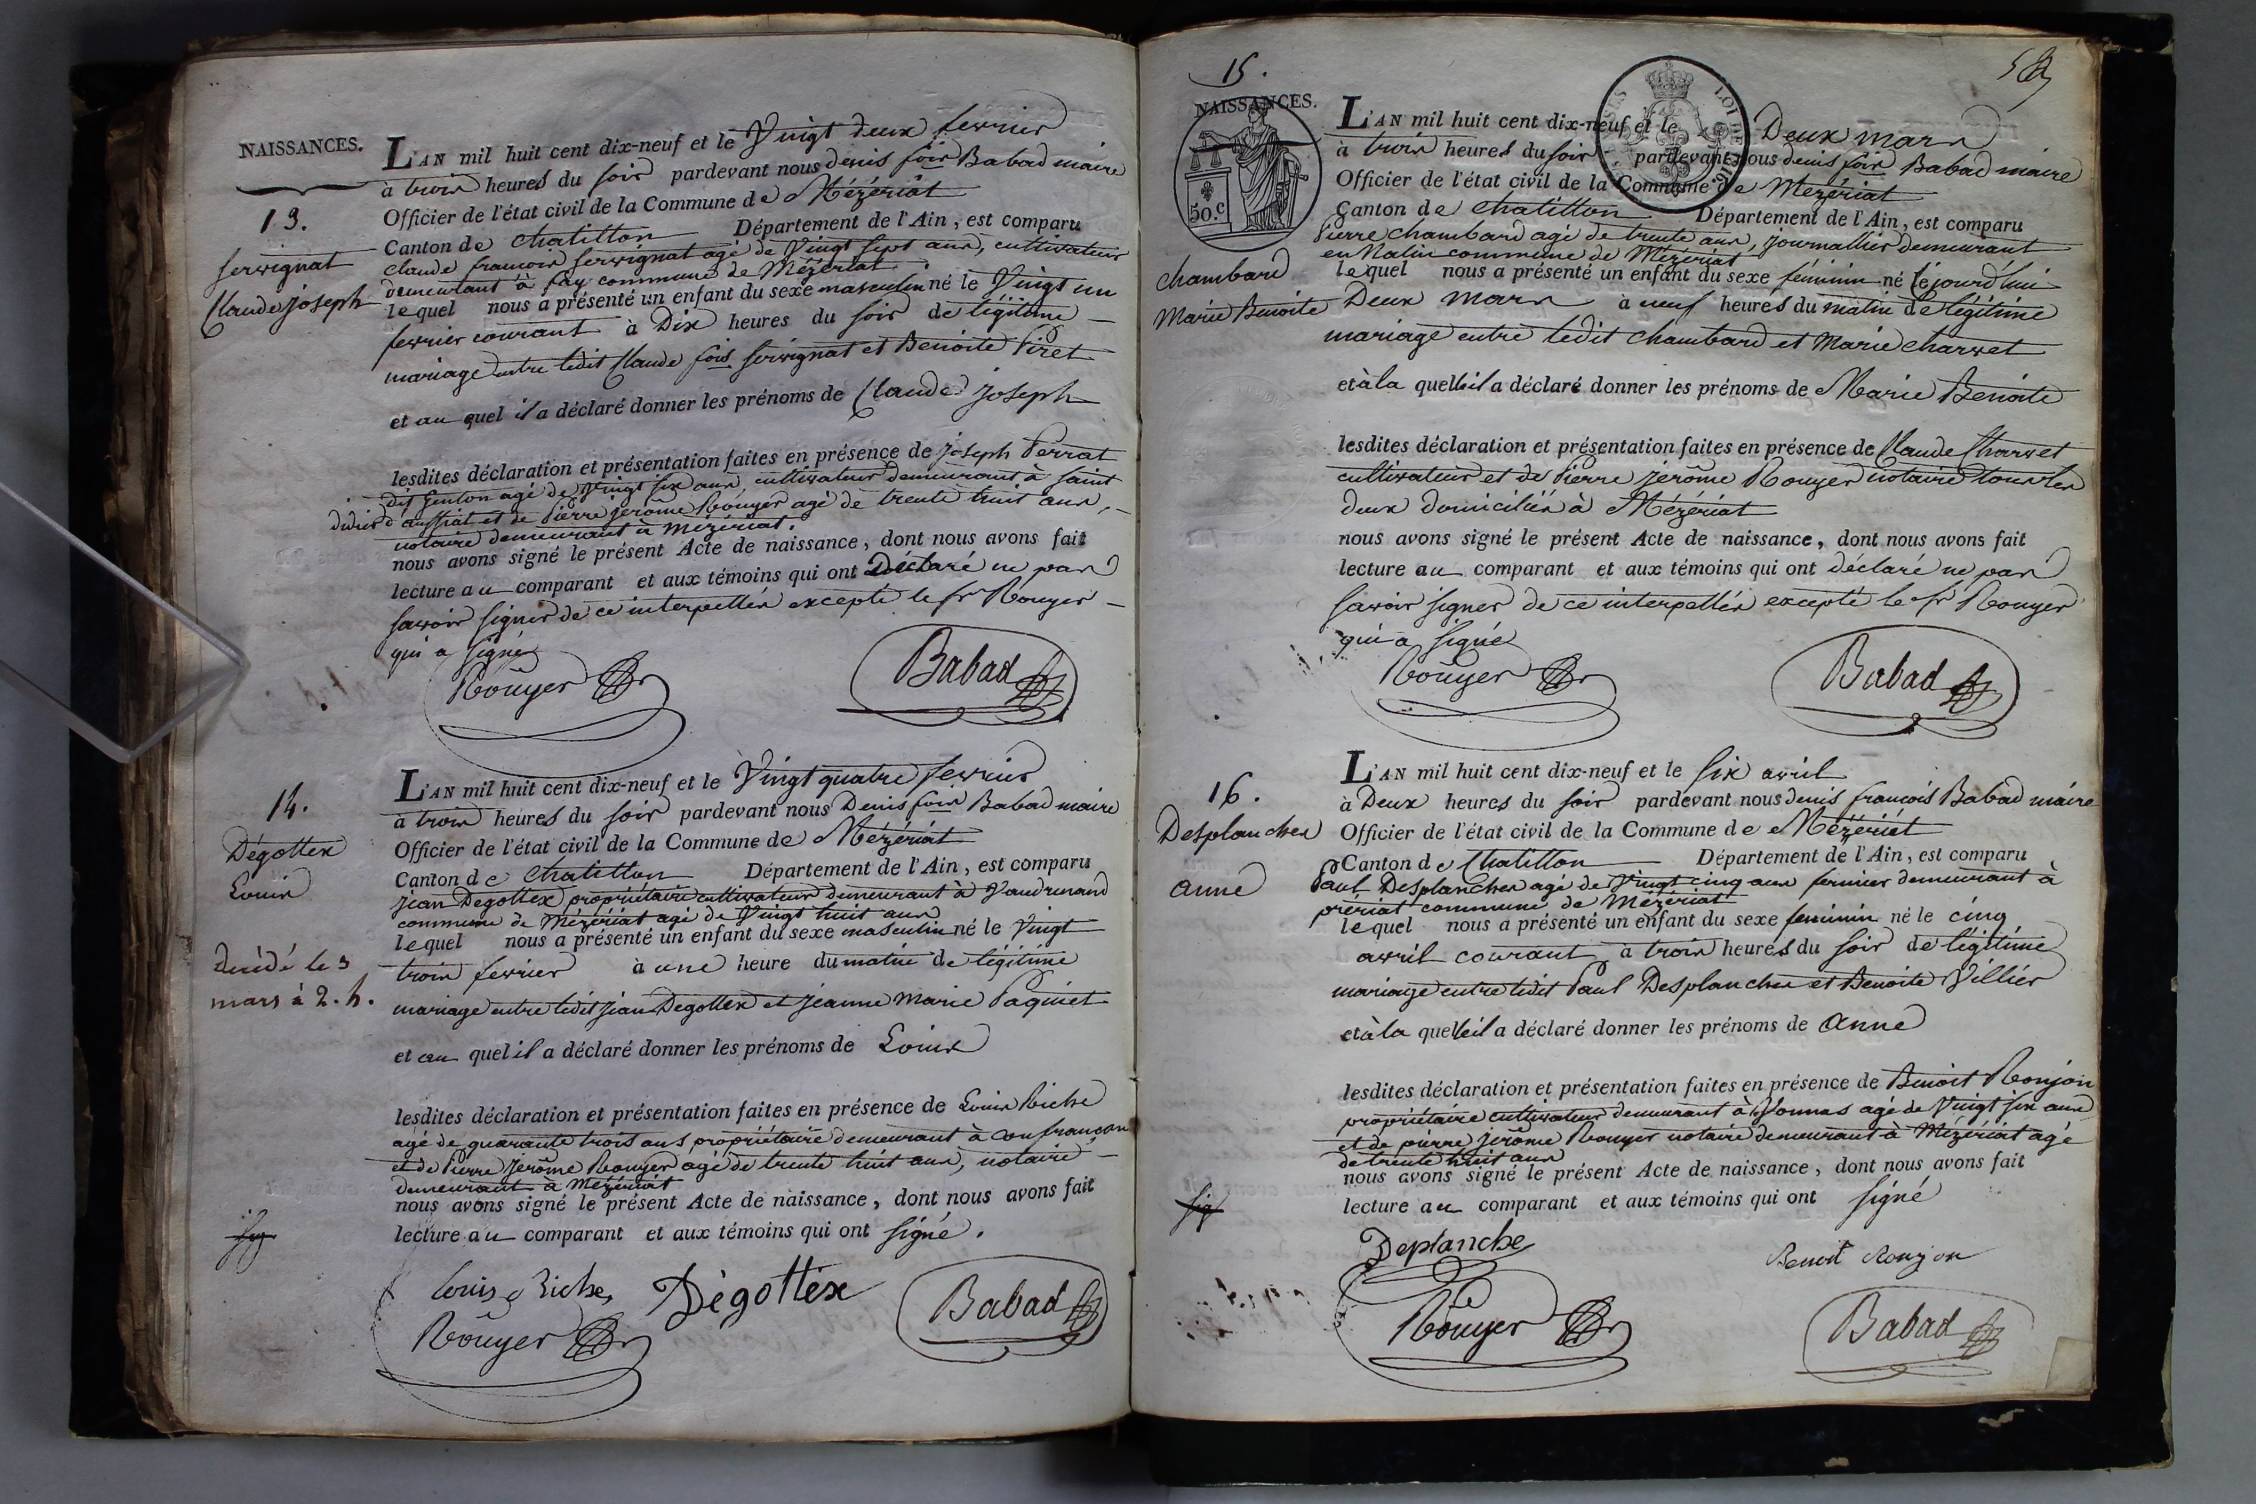 NAISSANCES.
13.
servignat
Claude joseph
L'AN mil huit cent dix-neuf et le Vingt deux fevrier
à trois heures du soir pardevant nous denis fois Babad maire
Officier de l'état civil de la Commune de Mézériat
Canton de chatillon Département de l'Ain, est comparu
claude francois servignat agé de Vingt sept ans, cultivateur
demeurant à fay commune de Mézériat
lequel nous a présenté un enfant du sexe masculin né le Vingt un
fevrier courant à Dix heures du soir de légitime
mariage entre ledit Claude fois servignat et Benoite Piret
et au quel il a déclaré donner les prénoms de Claude joseph
lesdites déclaration et présentation faites en présence de joseph Perrat
dit agé de Vingt six ans cultivateur demeurant à saint
didier d'aussiat et de Pierre jerôme Rouyer agé de trente huit ans,
notaire demeurant à Mézériat.
nous avons signé le présent Acte de naissance, dont nous avons fait
lecture au comparant et aux témoins qui ont Déclaré ne pas
savoir signer de ce interpellés excepté le sr Rouyer
qui a signé
Roüyer
Babad
14.
Dégottex
Louis
décédé le 3
mars à 2. h.
L'AN mil huit cent dix-neuf et le Vingt quatre fevrier
à trois heures du soir pardevant nous Denis fois Babad maire
Officier de l'état civil de la Commune de Mézériat
Canton de chatillon Département de l'Ain, est comparu
jean Degottex propriétaire cultivateur demeurant à Vaudrenand
commune de Mézériat agé de Vingt huit ans
lequel nous a présenté un enfant du sexe masculin né le Vingt
trois fevrier à une heure du matin de légitime
mariage entre ledit jean Degottex et jeanne Marie Paquiet
et au quel il a déclaré donner les prénoms de Louis
lesdites déclaration et présentation faites en présence de Louis Riche
agé de quarante trois ans propriétaire demeurant à confrançon
et de Pierre Jerôme Rouyer âgé de trente huit ans, notaire
demeurant à Mézériat
nous avons signé le présent Acte de naissance, dont nous avons fait
lecture au comparant et aux témoins qui ont signé.
sig
Louis Riche Dègottex
Roüyer
Babad
15.
NAISSANCES.
50.c
LOI DE 1816.
chambard
Marie Benoite
L'AN mil huit cent dix-neuf et le Deux mars
à trois heures du soir pardevant nous denis fois Babad maire
Officier de l'état civil de la Commune de Mézériat
Canton de chatillon Département de l'Ain, est comparu
Pierre chambard agé de trente ans, journallier demeurant
en commune de Mézériat
lequel nous a présenté un enfant du sexe féminin né cejourd'hui
Deux Mars à neuf heures du matin de légitime
mariage entre ledit chambard et Marie charvet
et à la quelle il a déclaré donner les prénoms de Marie Benoite
lesdites déclaration et présentation faites en présence de Claude Charvet
cultivateur et de Pierre jerôme Rouyer notaire tous les
deux domiciliés à Mézériat
nous avons signé le présent Acte de naissance, dont nous avons fait
lecture au comparant et aux témoins qui ont déclaré ne pas
savoir signer de ce interpellés excepté le sr Rouyer
qui a signé
Roüyer
Babad
16.
Desplanches
anne
L'AN mil huit cent dix-neuf et le six avril
à Deux heures du soir pardevant nous denis francois Babad maire
Officier de l'état civil de la Commune de Mézériat
Canton de Chatillon Département de l'Ain, est comparu
Paul Desplanches agé de Vingt cinq ans fermier demeurant à
prériat commune de Mézériat
lequel nous a présenté un enfant du sexe feminin né le cinq
avril courant à trois heures du soir de légitime
mariage entre ledit Paul Desplanches et Benoite Villier
et à la quelle il a déclaré donner les prénoms de anne
lesdites déclaration et présentation faites en présence de Benoit Ronjon
propriétaire cultivateur demeurant à Vonnas agé de Vingt six ans
et de pierre jerôme Rouyer notaire demeurant à Mézériat agé
de trente huit ans
nous avons signé le présent Acte de naissance, dont nous avons fait
lecture au comparant et aux témoins qui ont signé
sig
Deplanche
Benoit Ronjon
Roüyer
Babad